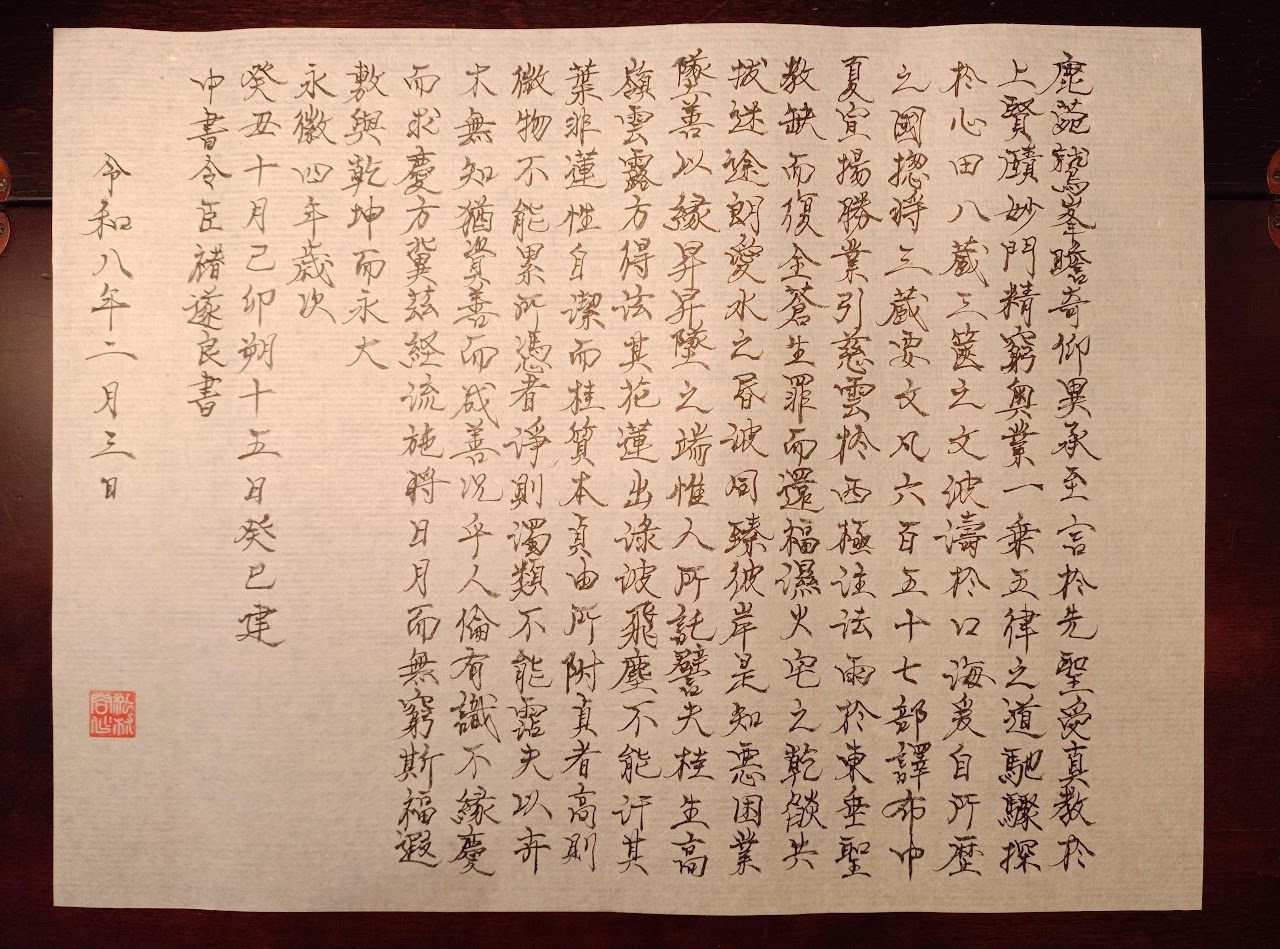 鹿苑鷲峯瞻奇仰異承至言於先聖受真教於
上賢賾妙門精窮奥業一乗五律之道馳驟
探
於心田八蔵三篋之文波濤於口海爰自所歴
之國揔将三蔵要文凡六百五十七部譯布中
夏宣揚勝業引慈雲於西極注法雨於東垂聖
教缺而復全蒼生罪而還福濕火宅之乾燄共
拔迷途朗愛水之昏波同臻彼岸是知悪因業
墜善以縁昇昇墜之端惟人所託譬夫桂生高
嶺雲露方得泫其花蓮出淥波飛塵不能汙其
葉非蓮性自潔而桂質本貞由所附真者高則
微物不能累所憑者淨則濁類不能霑夫以卉
木無知猶資善而成善況乎人倫有識不縁慶
而求慶方冀茲経流施将日月而無窮斯福遐
敷與乾坤而永大
永徽四年歳次
癸丑十月己卯朔十五日癸巳建
中書令臣褚遂良書
令和八年二月三日